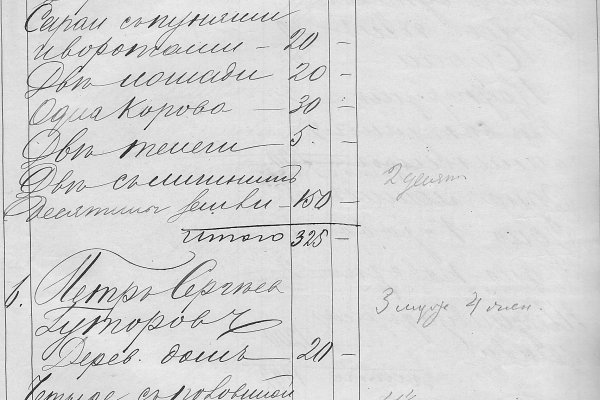 Сараи съ пунями
и воротами — 20 —
Двѣ лошади 20 —
Одна корова — 30 —
Двѣ телеги 5. —
Двѣ съ
Десятины земли — 150 — 2 десят
Итого 325 —
6. Петръ Сергѣев
Гуторовъ 3 муж 4 жен.
Дерев. домъ — 20 —
Четыре съ половиной